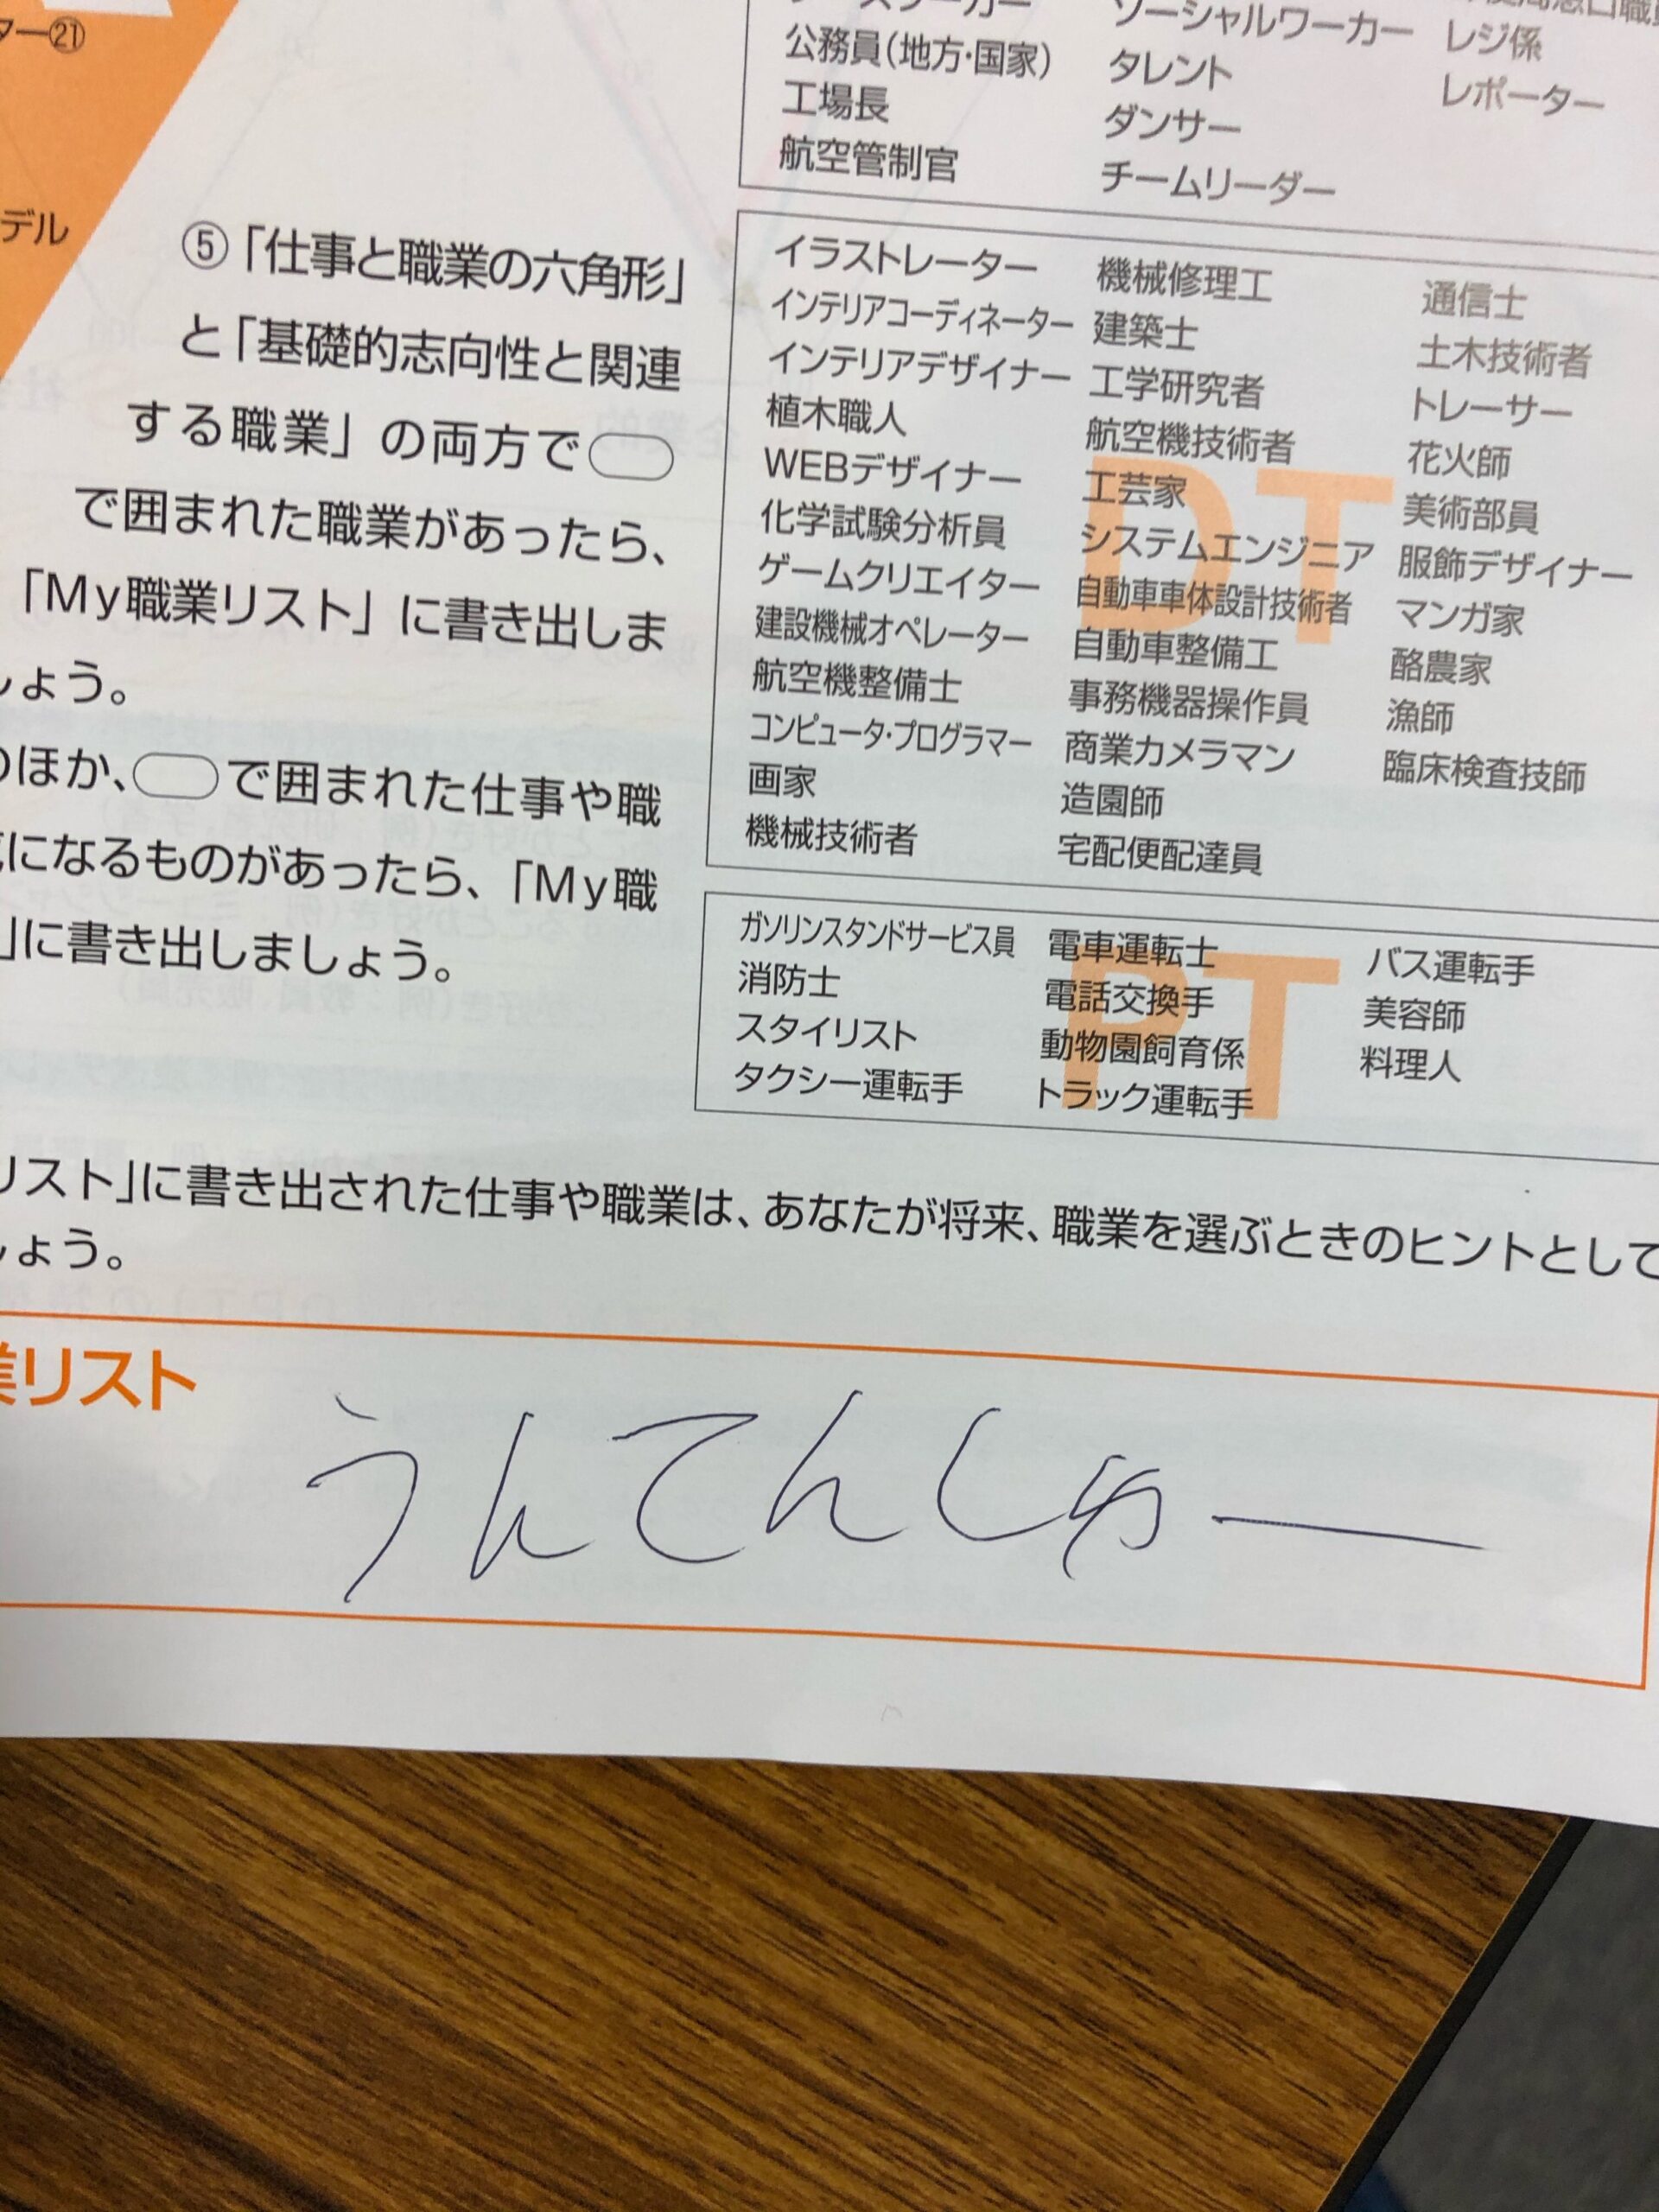 ター㉑
デル
公務員(地方・国家)
工場長
航空管制官
ソーシャルワーカー
タレント
ダンサー
チームリーダー
レジ係
レポーター
⑤「仕事と職業の六角形」
と「基礎的志向性と関連
する職業」の両方で
で囲まれた職業があったら、
「My職業リスト」に書き出しま
しょう。
のほか、で囲まれた仕事や職
になるものがあったら、「My職
」に書き出しましょう。
イラストレーター
インテリアコーディネーター
インテリアデザイナー
植木職人
WEBデザイナー
化学試験分析員
ゲームクリエイター
建設機械オペレーター
航空機整備士
コンピュータ・プログラマー
画家
機械技術者
機械修理工
建築士
工学研究者
航空機技術者
工芸家
システムエンジニア
自動車車体設計技術者
自動車整備工
事務機器操作員
商業カメラマン
造園師
宅配便配達員
通信士
土木技術者
トレーサー
花火師
美術部員
服飾デザイナー
マンガ家
酪農家
漁師
臨床検査技師
DT
ガソリンスタンドサービス員
消防士
スタイリスト
タクシー運転手
電車運転士
電話交換手
動物園飼育係
トラック運転手
バス運転手
美容師
料理人
PT
リスト」に書き出された仕事や職業は、あなたが将来、職業を選ぶときのヒントとして
しょう。
業リスト
うんてんしゅー